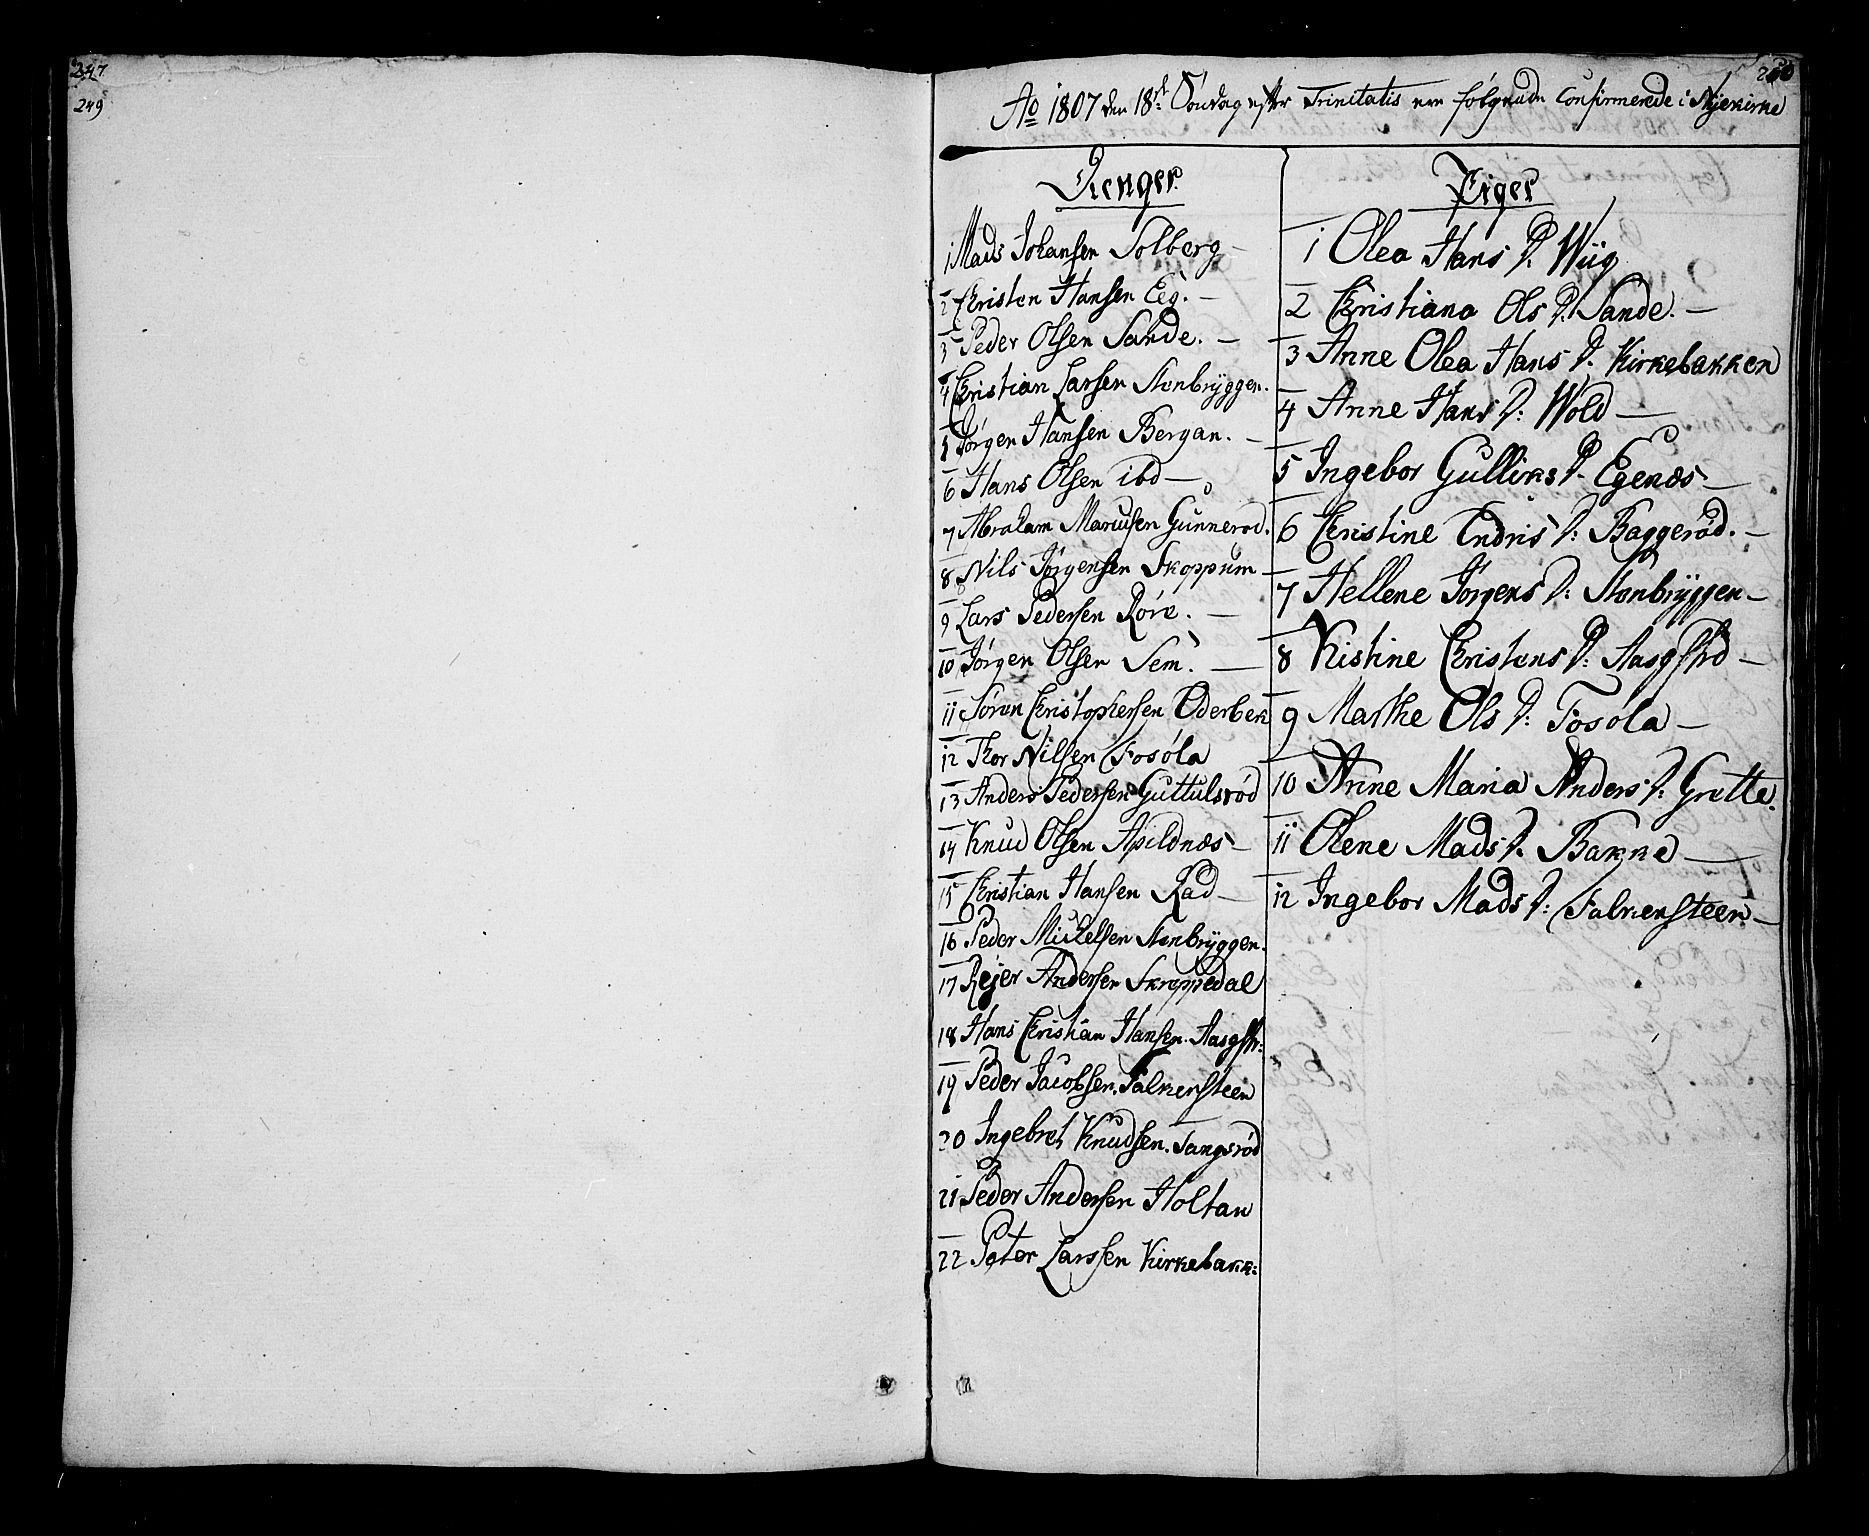 247
249
Ao 1807 den 18de Søndag efter Trinitatis ere følgende Confirmerede i Nyekirke
Drenger
1 Mads Johansen Solberg –
2 Christen Hansen Eeg. –
3 Peder Olsen Sande. –
4 Christian Larsen Stenbryggen.
5 Jørgen Hansen Bergan. –
6 Hans Olsen ibd –
7 Abraham Marcusen Gunnerød.
8 Nils Jørgensen Skoppum –
9 Lars Pedersen Røre. –
10 Jørgen Olsen Sem. –
11 Søren Christophersen Oderbek
12 Thor Nilsen Fosøla
13 Anders Pedersen Guttulsrød
14 Knud Olsen Apildnæs –
15 Christian Hansen Rød –
16 Peder Michelsen Stenbryggen.
17 Rejer Andersen Skroppedal
18 Hans Christian Hansen. Aasgstr:
19 Peder Jacobsen. Falkensteen
20 Ingebret Knudsen. Tangsrød
21 Peder Andersen Holtan
22 Peter Larssen Kirkebakk:
Piger
1 Olea Hans D. Wiig
2 Christiana Ols D. Sande. –
3 Anne Olea Hans D. Kirkebakken
4 Anne Hans D: Wold –
5 Ingebor Gulliks D. Egenæs –
6 Christine Endris D: Baggerød. –
7 Hellene Jørgens D: Stenbryggen –
8 Kistine Christens D: Aasgstrd –
9 Marthe Ols D: Fosøla –
10 Anne Maria Anders D: Grette.
11 Olene Mads D. Bakke –
12 Ingebor Mads D: Falkensteen –